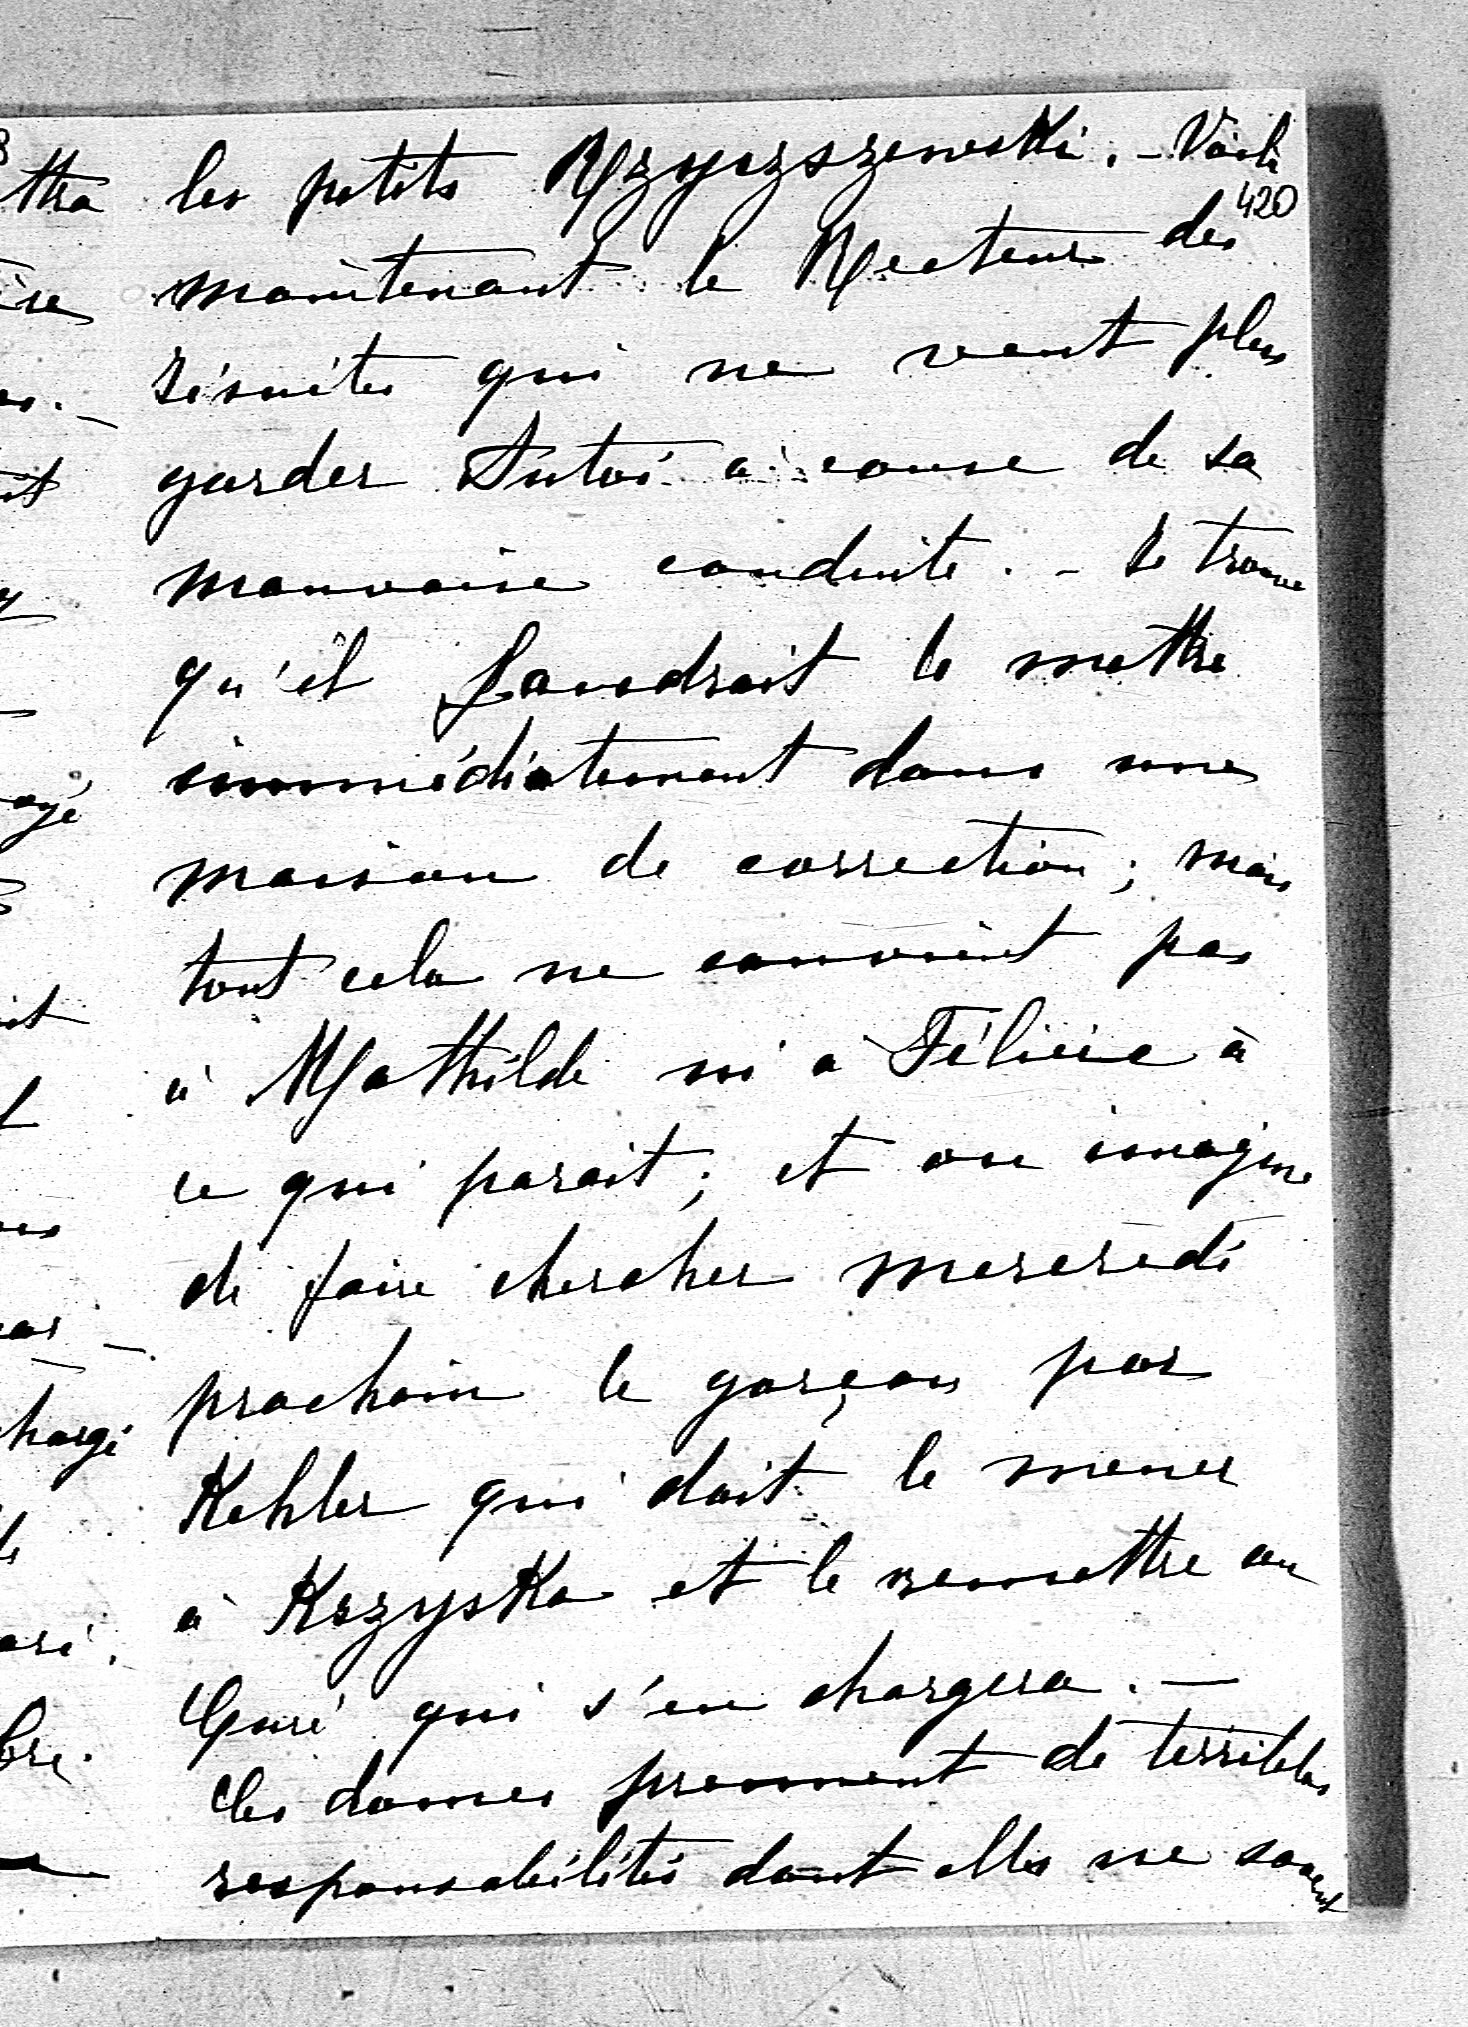 les petits Rzyszszewski. – Voilà
420
maintenant le Recteur des
Jésuites qui ne veut plus
garder Antoi à cause de sa
mauvaise conduite. – Je trouve
qu'il faudrait le mettre
immédiatement dans une
maison de correction; mais
tout cela ne convient pas
à Mathilde ni à Félicie à
ce qui parait; et on imagine
de faire chercher mercredi
prochain le garçon par
Kehler qui doit le mener
à Krzyska et le remettre au
Curé qui s'en chargera. –
Ces dames prennent de terribles
responsabilités dont elles ne savent